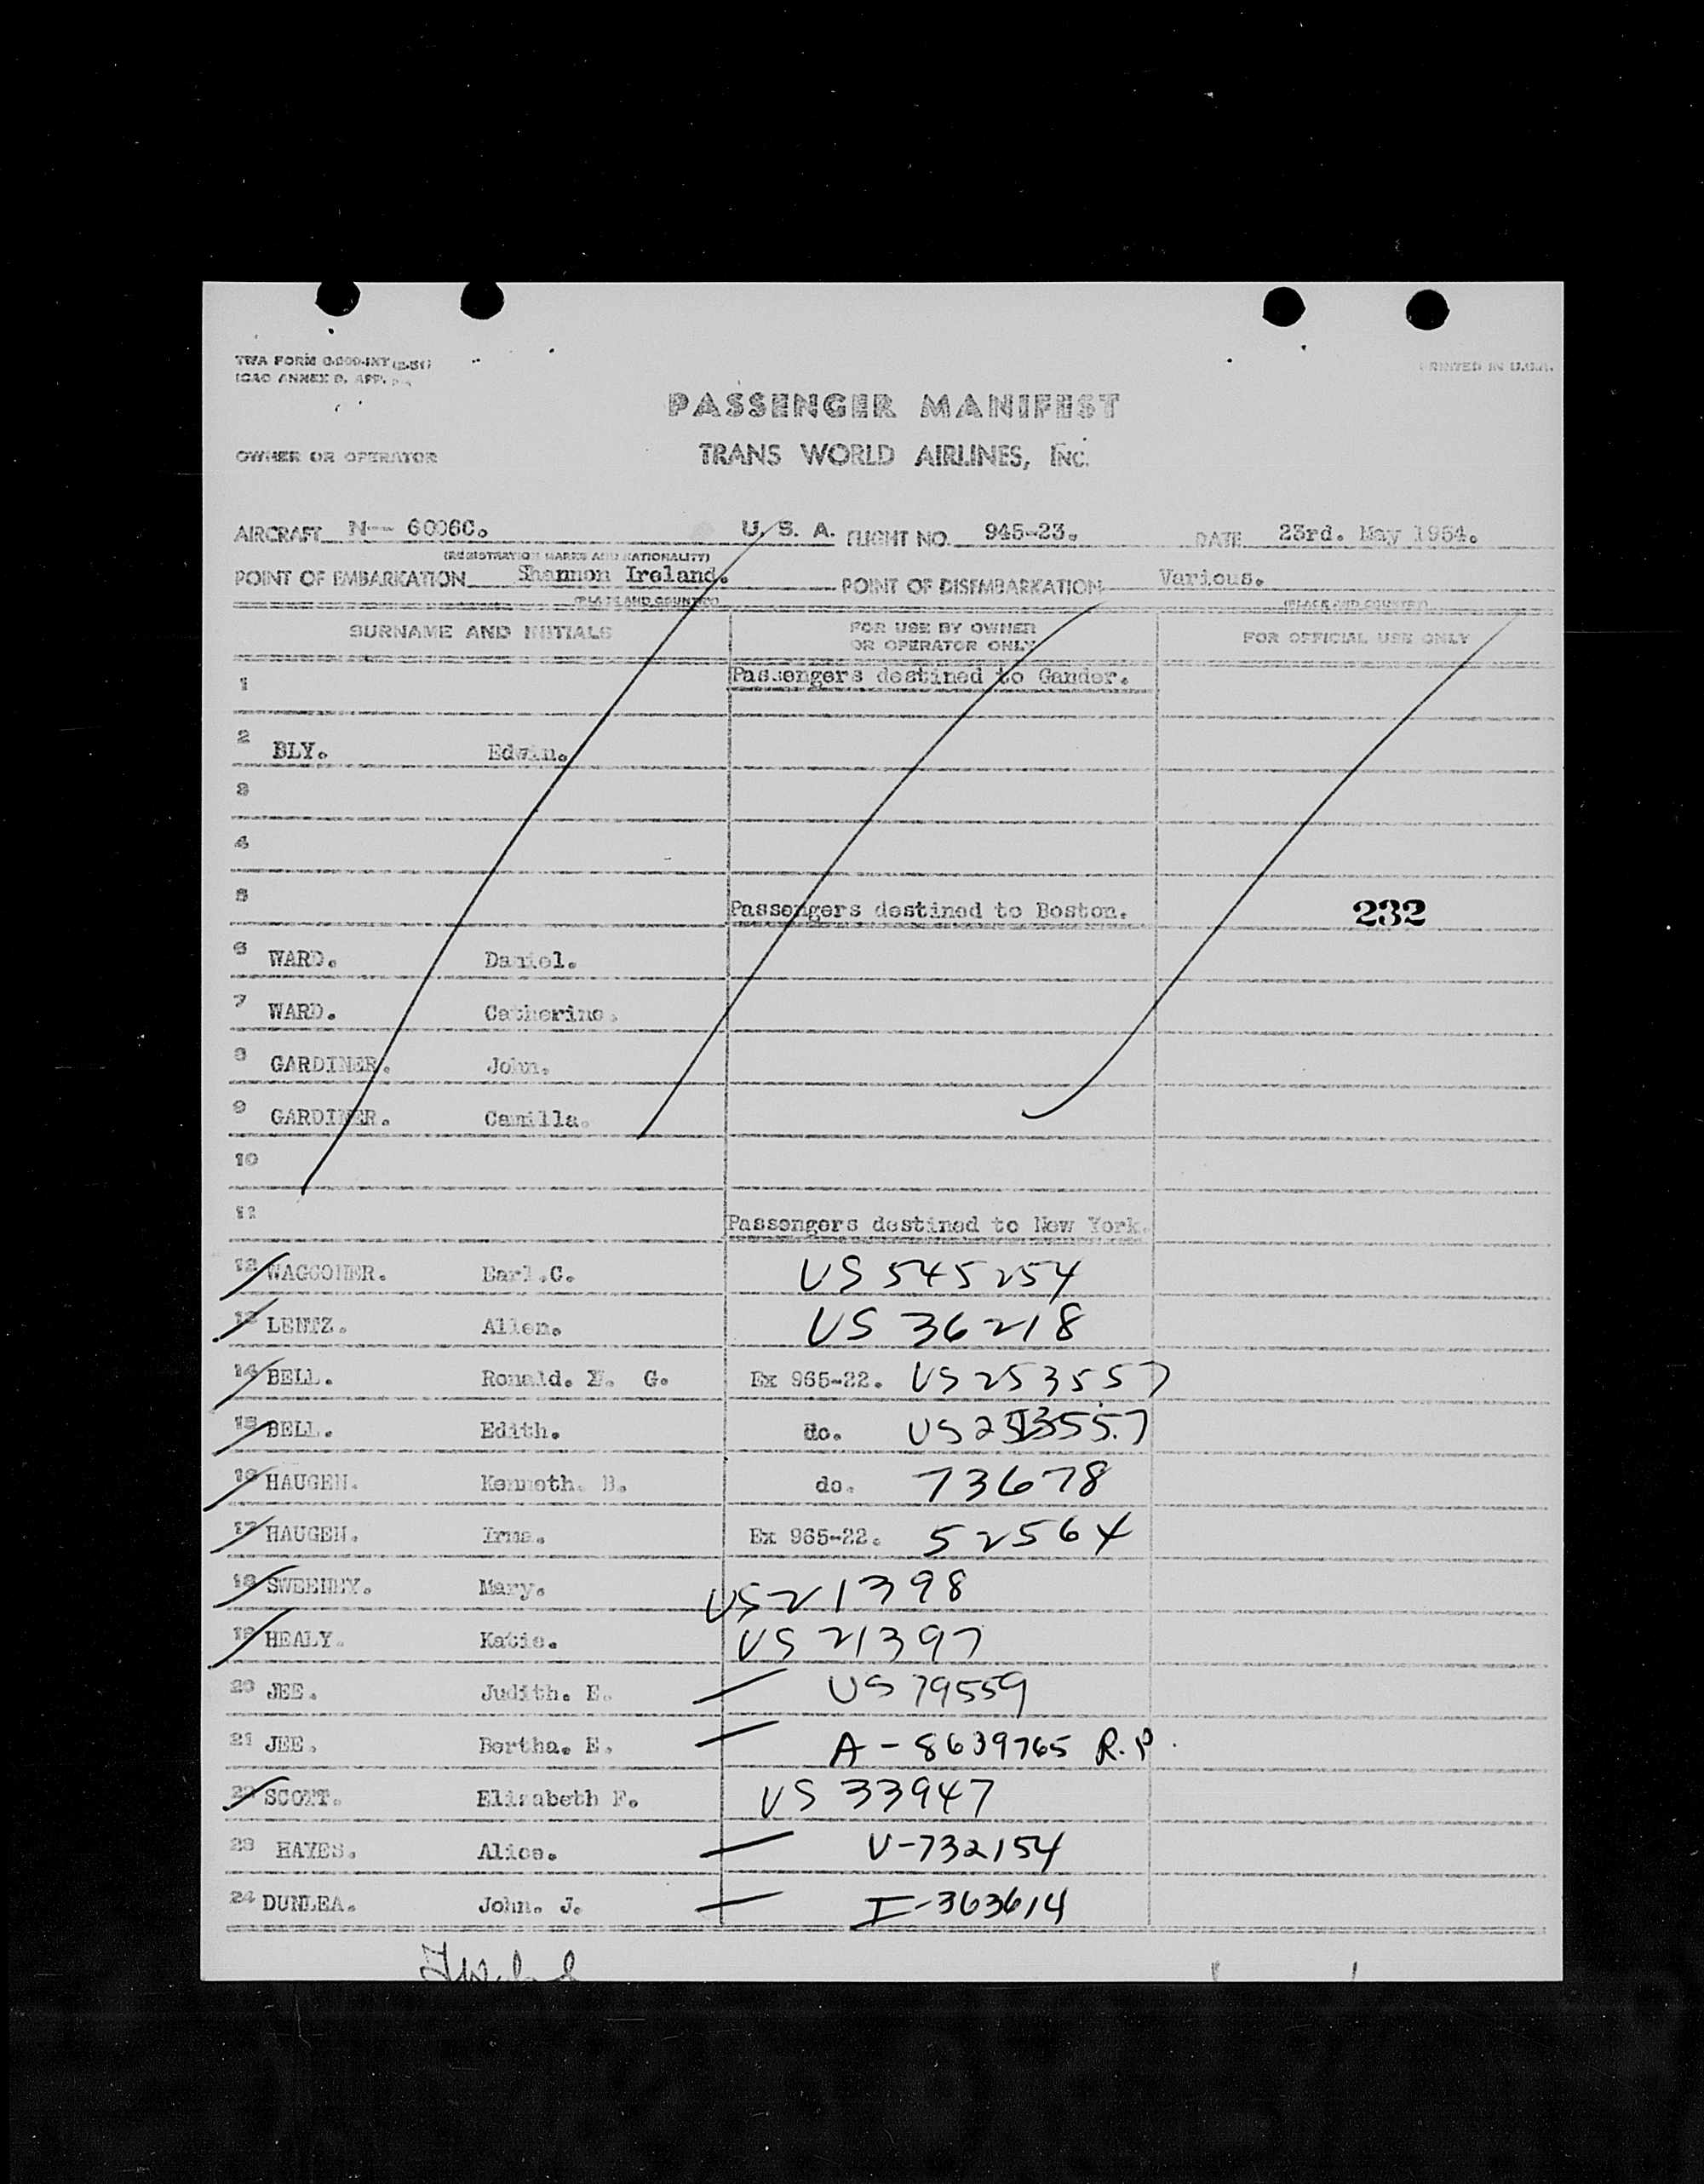 TWA FORM
ICAO ANNEX 9, APP.
PRINTED IN U.S.A.
PASSENGER MANIFEST
OWNER OR OPERATOR TRANS WORLD AIRLINES, INC.
AIRCRAFT N-- 6006C. U. S. A. FLIGHT NO. 945-23. DATE 23rd. May 1954.
(REGISTRATION MARKS AND NATIONALITY)
POINT OF EMBARKATION Shannon Ireland. POINT OF DISEMBARKATION Various.
(PLACE AND COUNTRY) (PLACE AND COUNTRY)
SURNAME AND INITIALS FOR USE BY OWNER OR OPERATOR ONLY FOR OFFICIAL USE ONLY
1 Passengers destined to Gander.
2 BLY. Edwin.
3
4
5 Passengers destined to Boston. 232
6 WARD. Daniel.
7 WARD. Catherine.
8 GARDINER. John.
9 GARDINER. Camilla.
10
11 Passengers destined to New York.
12 WAGGONER. Earl.C. US 545254
13 LENTZ. Allen. US 36218
14 BELL. Ronald. G. Ex 965-22. US 253557
15 BELL. Edith. do. US 253557
16 HAUGEN. Kenneth. B. do. 73678
17 HAUGEN. Irma. Ex 965-22. 52564
18 SWEENEY. Mary. US 21398
19 HEALY. Katie. US 21397
20 JEE. Judith. E. US 79559
21 JEE. Bertha. E. A-8639765 R.P.
22 SCOTT. Elizabeth F. US 33947
23 HAYES. Alice. V-732154
24 DUNLEA. John. J. I-363614